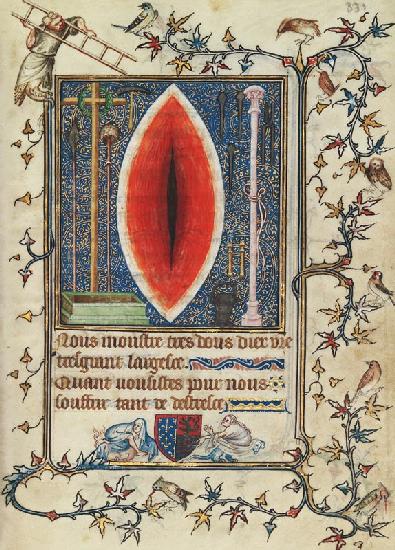 Nous monstre tres dous
tresgrant largesce.
Quant vousistes pour nous
souffrir tant de destresce.